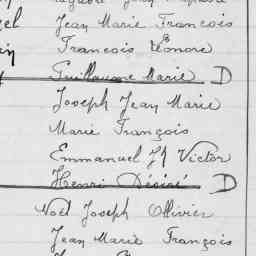 Jean Marie François
François Léonore
Guillaume Marie D
Joseph Jean Marie
Marie François
Emmanuel Victor
Henri Désiré D
Noël Joseph Ollivier
Jean Marie François